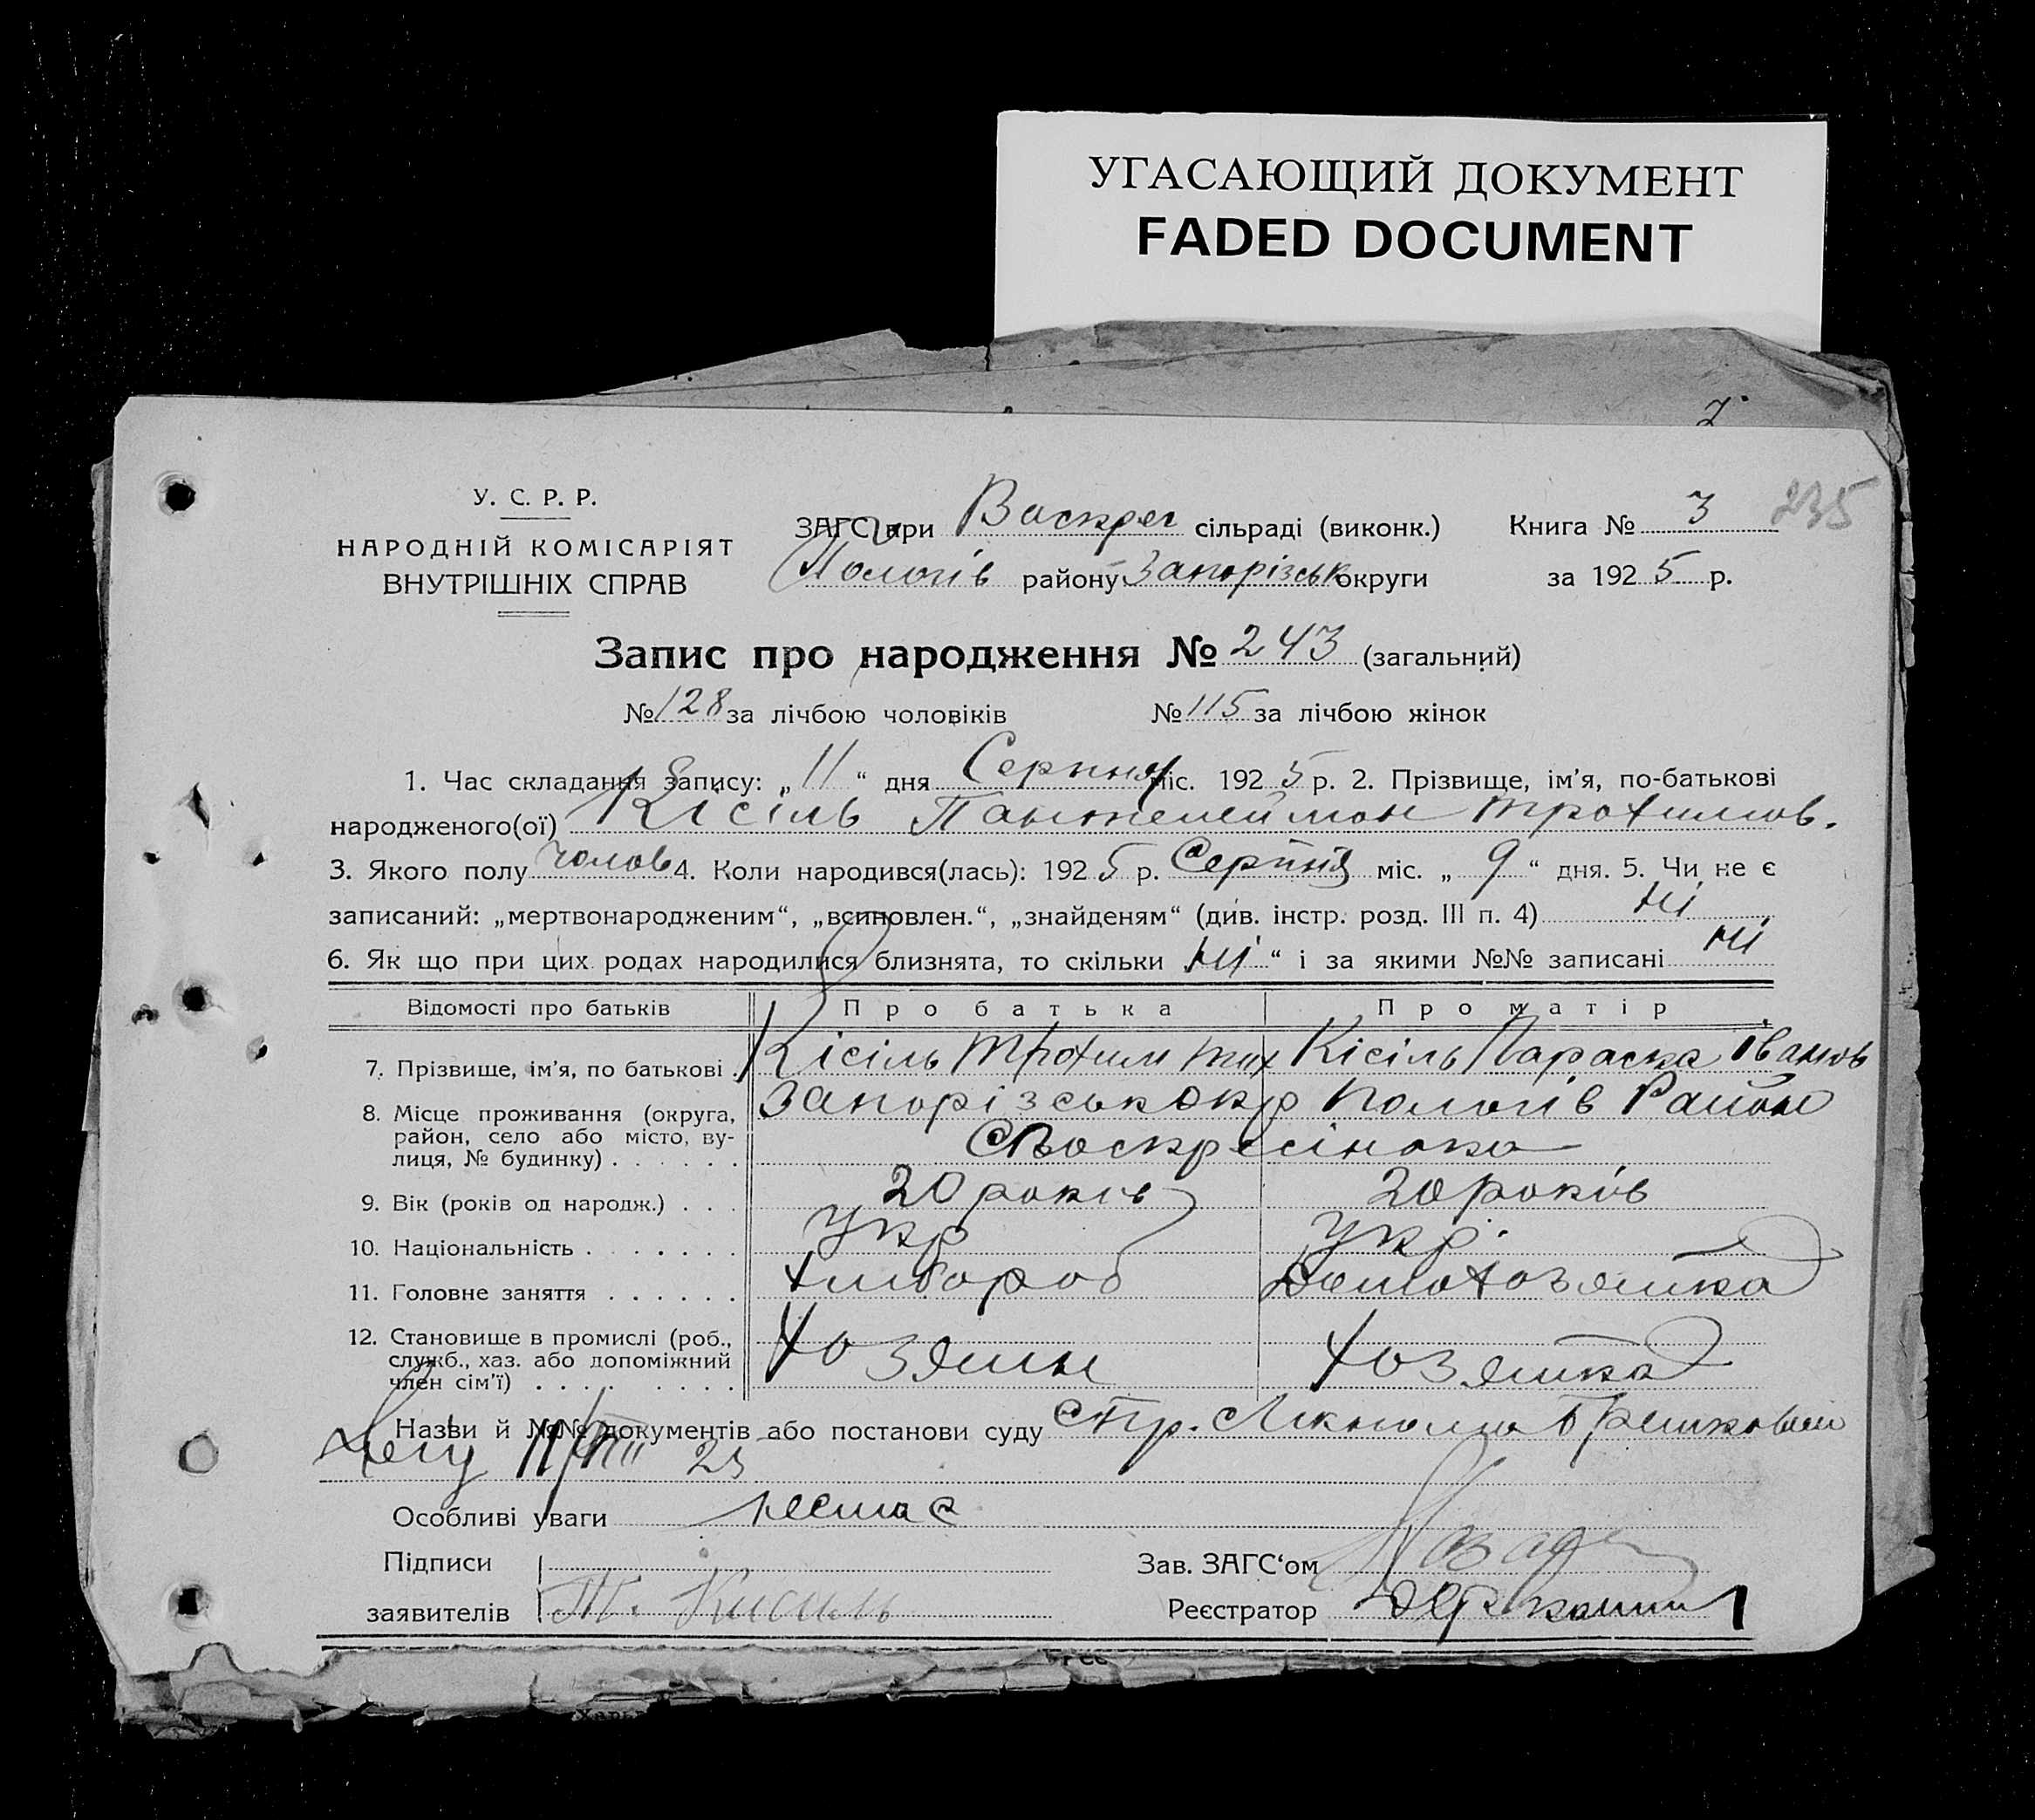 УГАСАЮЩИЙ ДОКУМЕНТ
FADED DOCUMENT
У. С. Р. Р.
НАРОДНІЙ КОМІСАРІЯТ
ВНУТРІШНІХ СПРАВ
ЗАГС при Васкрес сільраді (виконк.)
Пологів району Запорізськ округи
Книга № 3
235
за 1925 р.
Запис про народження № 243 (загальний)
№ 128 за лічбою чоловіків № 115 за лічбою жінок
1. Час складання запису: „11“ дня Серпня міс. 1925 р. 2. Прізвище, ім'я, по-батькові
народженого(ої) Кісіль Пантелеймон Трофимов.
3. Якого полу чолов 4. Коли народився(лась): 1925 р. Серпня міс. „9“ дня. 5. Чи не є
записаний: „мертвонародженим“, „всиновлен.“, „знайденям“ (див. інстр. розд. III п. 4) ні
6. Як що при цих родах народилися близнята, то скільки ні“ і за якими №№ записані ні
Відомості про батьків Про батька Про матір
7. Прізвище, ім'я, по батькові . Кісіль Трохим Тих Кісіль Параска Іванов
8. Місце проживання (округа, Запорізськ окр Пологів Район
район, село або місто, ву-
лиця, № будинку) . . . . . . С Воскресінока
9. Вік (років од народж.) . . . 20 років 20 років
10. Національність . . . . . . . Укр Укр.
11. Головне заняття . . . . . . Хлібороб Домохозяйка
12. Становище в промислі (роб.,
служб., хаз. або допоміжний Хозяин Хозяйка
член сім'ї) . . . . . . . .
Назви й №№ документів або постанови суду
11/VIII 25
Особливі уваги немає
Підписи
заявителів Т. Кисиль
Зав. ЗАГС‘ом
Реєстратор